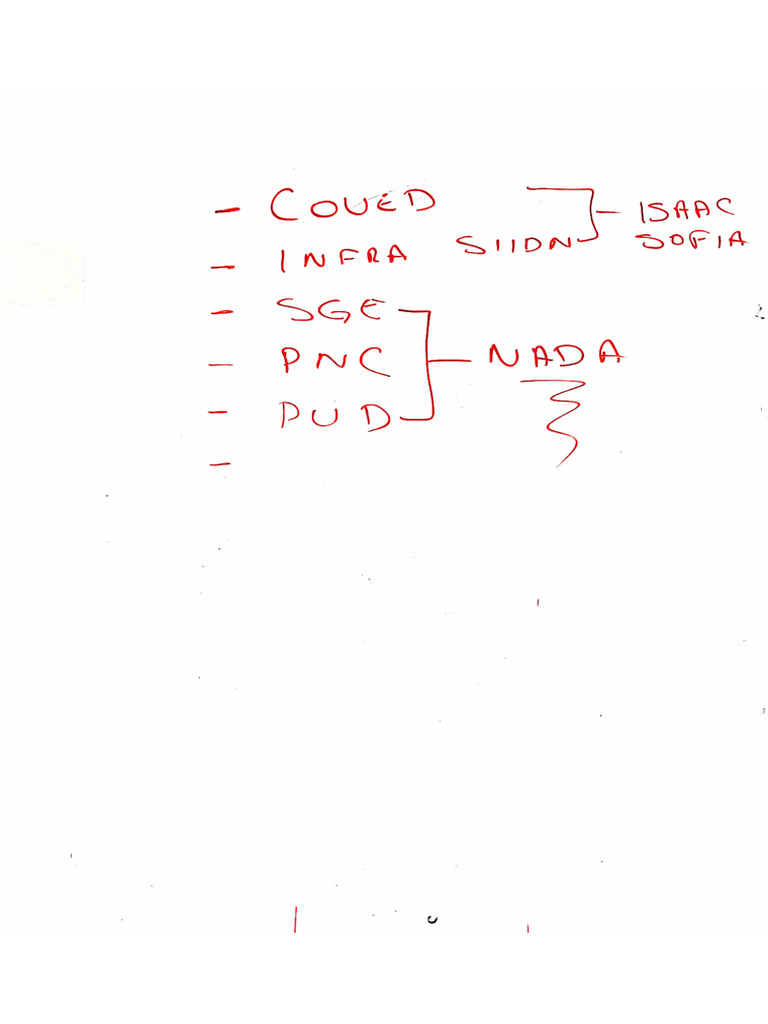 - COVED ISAAC
- INFRA SIIDN SOFIA
- SGE
- PNC NADA
- PUD
-